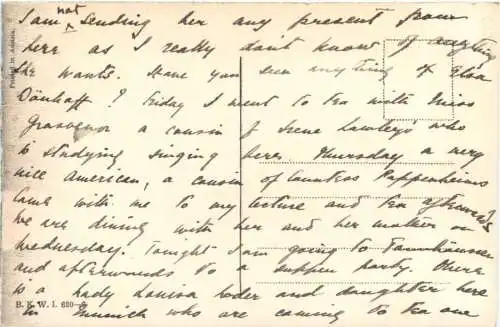 I am not sending her any present from
here as I really don't know of anything
she wants. Have you seen anything of Elsa
Dönhoff? Friday I went to tea with Miss
Grosvenor a cousin of Irene Lawley's who
is studying singing here. Thursday a very
nice American, a cousin of Countess Pappenheims
came with me to my lecture and tea afterwards
we are dining with her and her mother on
Wednesday. Tonight I am going to Tannhäuser
and afterwards to a supper party. There
is a Lady Louisa and daughter here
in Munich who are coming to tea one
B. K. W. I. 630-
Printed in Austria.